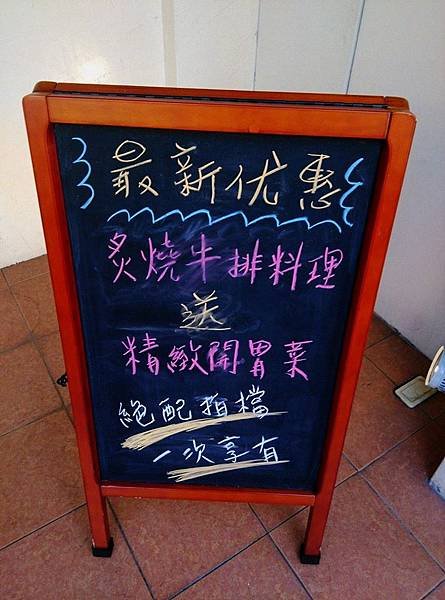 最新优惠
炙燒牛排料理
送
精緻開胃菜
絕配拍檔
一次享有